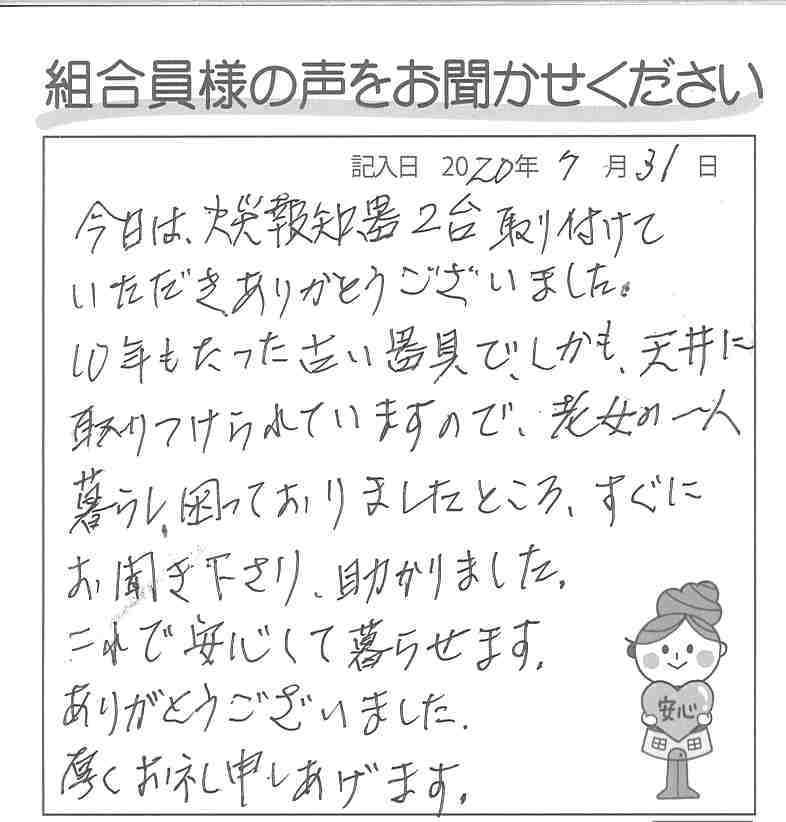 組合員様の声をお聞かせください
記入日 2020年 7月31日
今日は、火災報知器2台取り付けて
いただき、ありがとうございました。
10年もたった古い器具で、しかも、天井に
取りつけられていますので、老女の一人
暮らし、困っておりましたところ、すぐに
お聞き下さり、助かりました。
これで安心して暮らせます。
ありがとうございました。
厚くお礼申しあげます。
安心